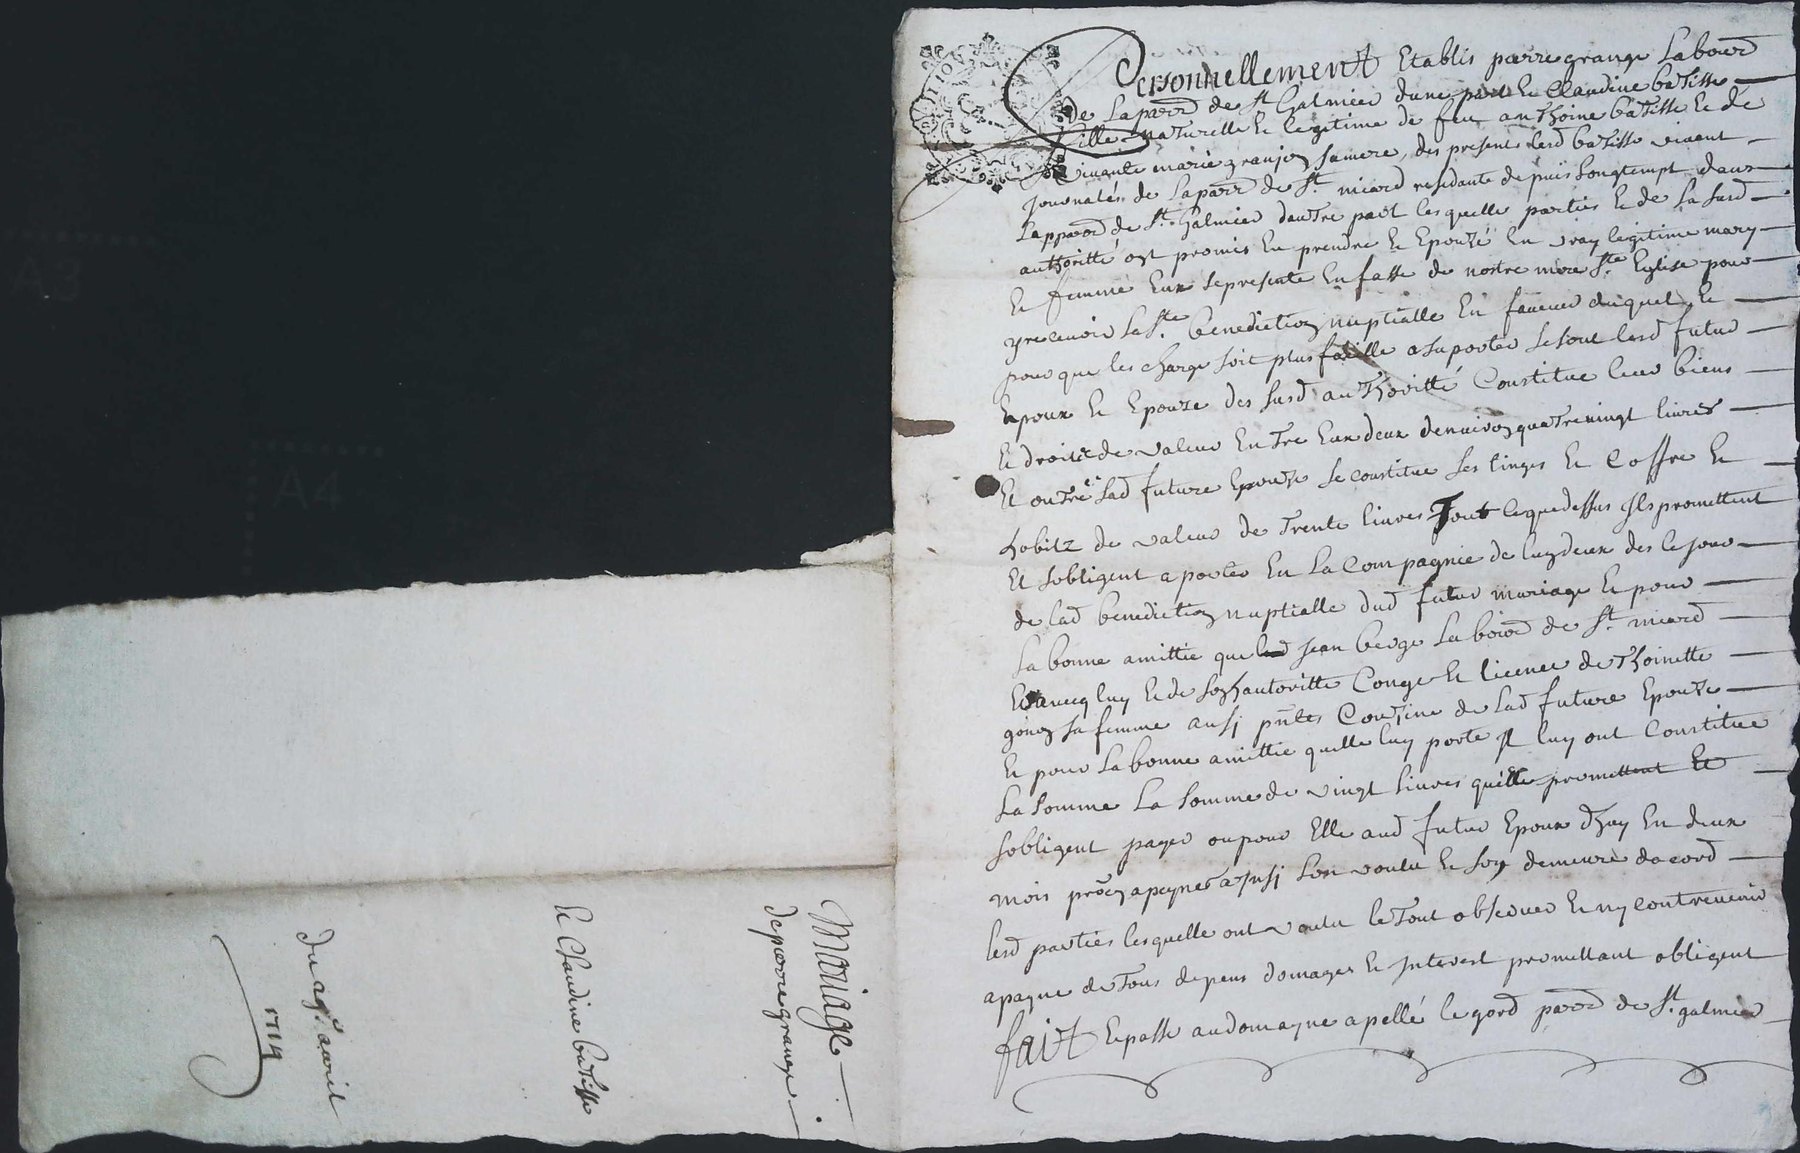 Personnellement Etablis pierre grange Labourd
de La parr de St Galmier dune part Et Claudine batisse
fille naturelle Et legitime de feu anthoine batisse Et de
vivante marie granjon sa mere, des presents lesd batisse
de La parr de St meard residante depuis longtempt dans
La parr de St Galmier dautre part lesquelle parties Et de La susd
authoritté ont promis En prendre Et Epouzé En vray legitime mary
Et femme Eux se presenté En fasse de nostre mere Ste Eglise pour
y recevoir La Ste benediction nuptialle En faveur duquel Et
pour que les charge soit plus fasille a suporter se sont lesd futur
Epoux Et Epouze des susd authoritté Constitue leur biens
Et droits de valeur Entre Eux deux denviron quatrevingt livres
Et outre lad future Epouze se constitue ses linges Et Coffre Et
habitz de valeur de trente livres Tout ce que dessus Ils promettent
Et sobligent aporter En La Compagnie de luy deux des le jour
de lad benediction nuptialle dud futur mariage Et pour
La bonne amittie que led Jean berge Labourd de St meard
avecq luy Et de son hautoritte Conge Et licence de Thoinette
sa femme ausy pntes Couzine de lad future Epouze
Et pour La bonne amittie quelle luy porte Il luy ont Constitue
La somme La somme de vingt livres quelle promettent Et
sobligent payer ou pour Elle aud futur Epoux dhuy En deux
mois proch a peyne ainsi lon voulu Et son demeure dacord
lesd parties lesquelle ont voulu le tout observer Et ny contrevenir
a payne de tous depens domages Et Interest promettant obligent
fait Et passe au domayne apellé le gord parr de St galmier
Mariage
de pierre grange
Et Claudine batisse
Du avril
1714